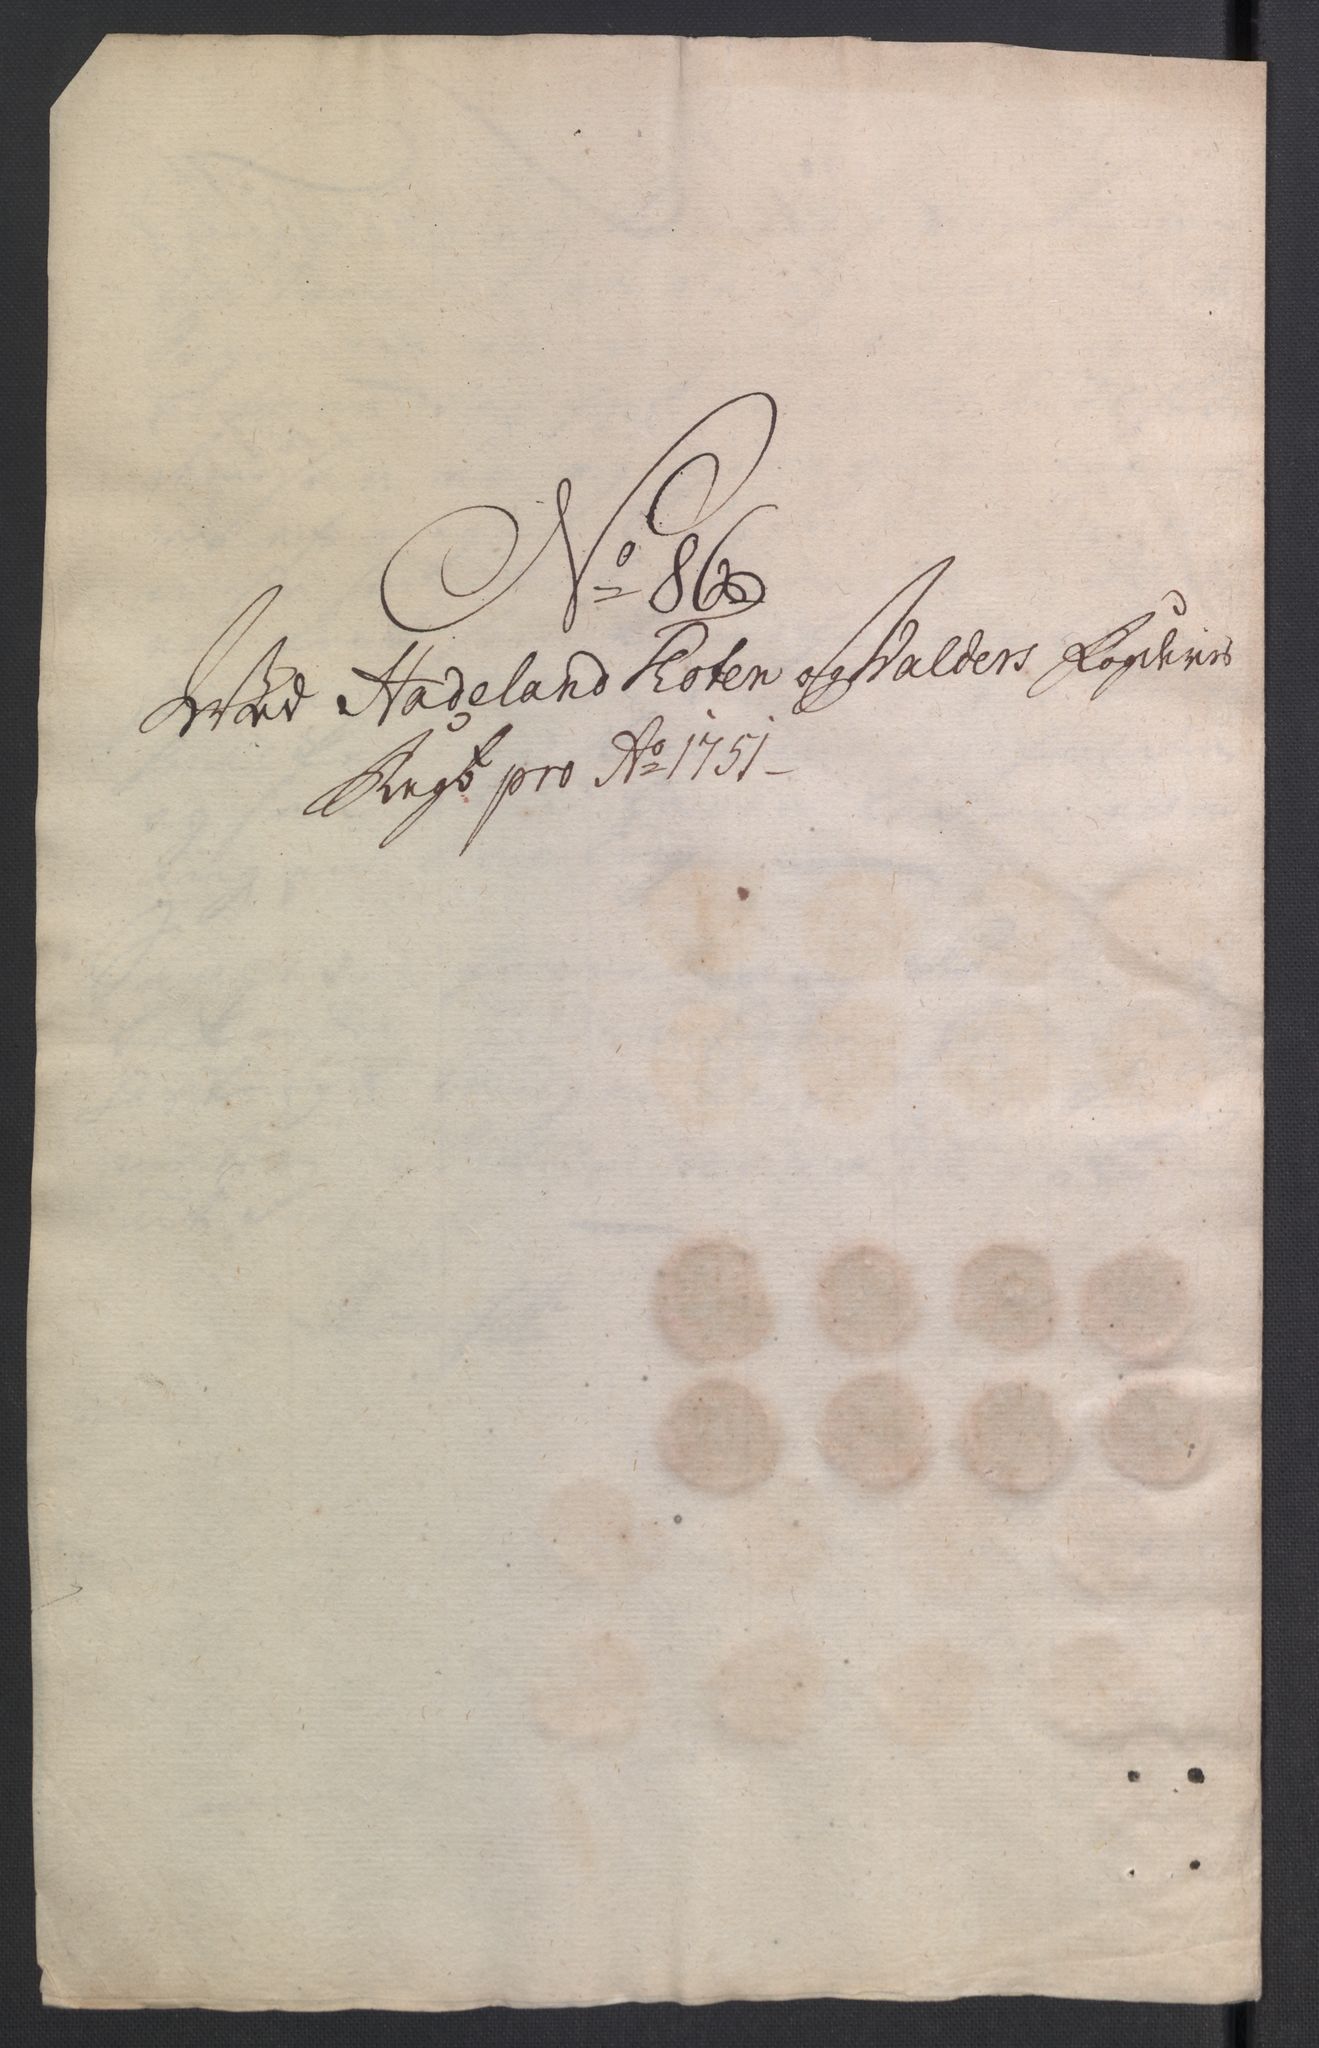 No 86
Wed Hadeland Toten og Valders Fogderies
Regsk pro Ao 1751